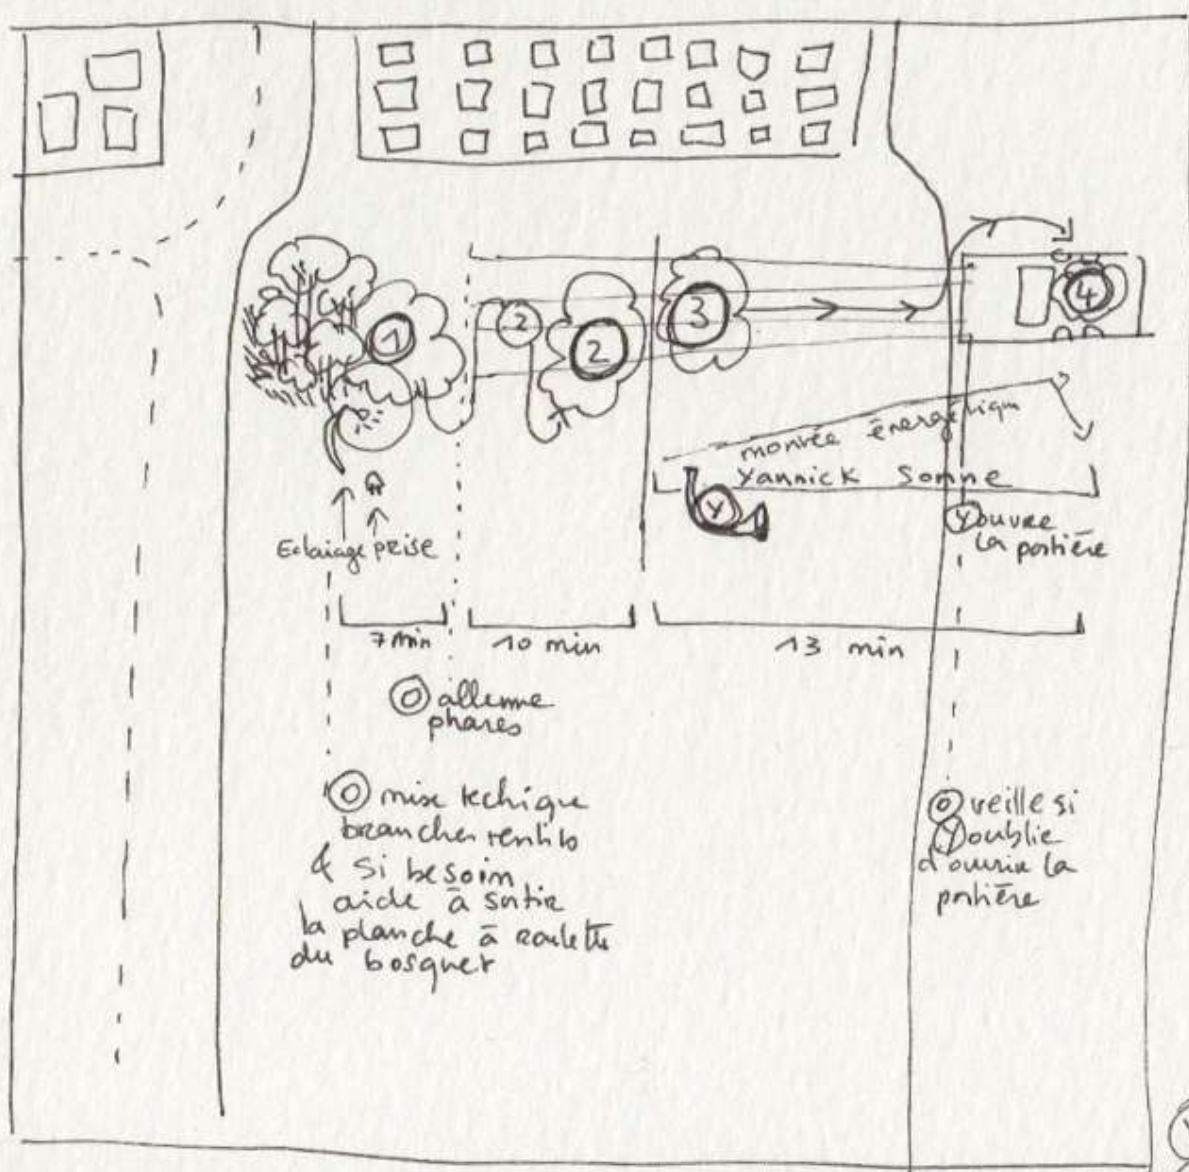 1
2
2
3
4
montée énergétique
Yannick Sonne
Y
Y ouvre
la portière
Eclairage prise
7 min
10 min
13 min
O allume
phares
O mise techique
brancher
& si besoin
aide à sortir
la planche à roulette
du bosquet
O veille si
Y oublie
d'ouvrir la
portière
Y